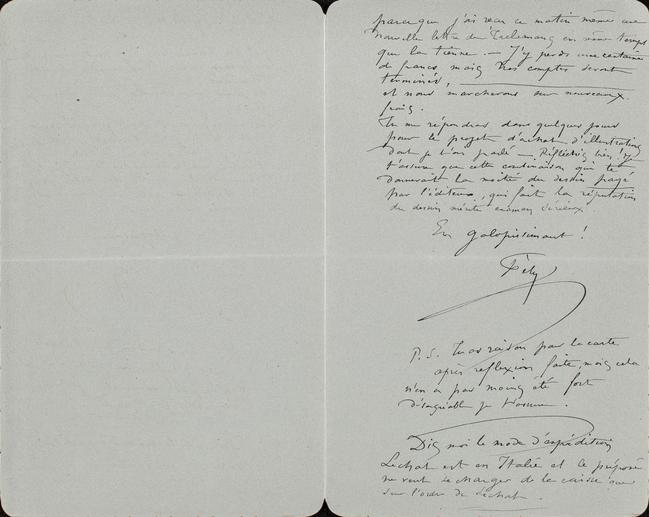 parce que j'ai reçu ce matin même une
nouvelle lettre de en même temps
que la tienne. — J'y perds une certaine
de francs, mais nos comptes seront
terminés,
et nous marcherons sur nouveaux
frais.
Tu me répondras dans quelques jours
pour le projet d'achat d'illustrations
dont je t'ai parlé — Réfléchis bien! Je
t'assure que cette combinaison qui te
donnerait la moitié du dessin payé
par l'éditeur, qui fait la réputation
du dessin mérite examen sérieux!
En galopissimant!
Fély
P.S. Tu as raison pour la carte
après réflexion faite, mais cela
n'en a pas moins été fort
désagréable je t'assure.
Dis moi le mode d'expédition
Lechat est en Italie et le préposé
ne veut se charger de la caisse que
sur l'ordre de Lechat.